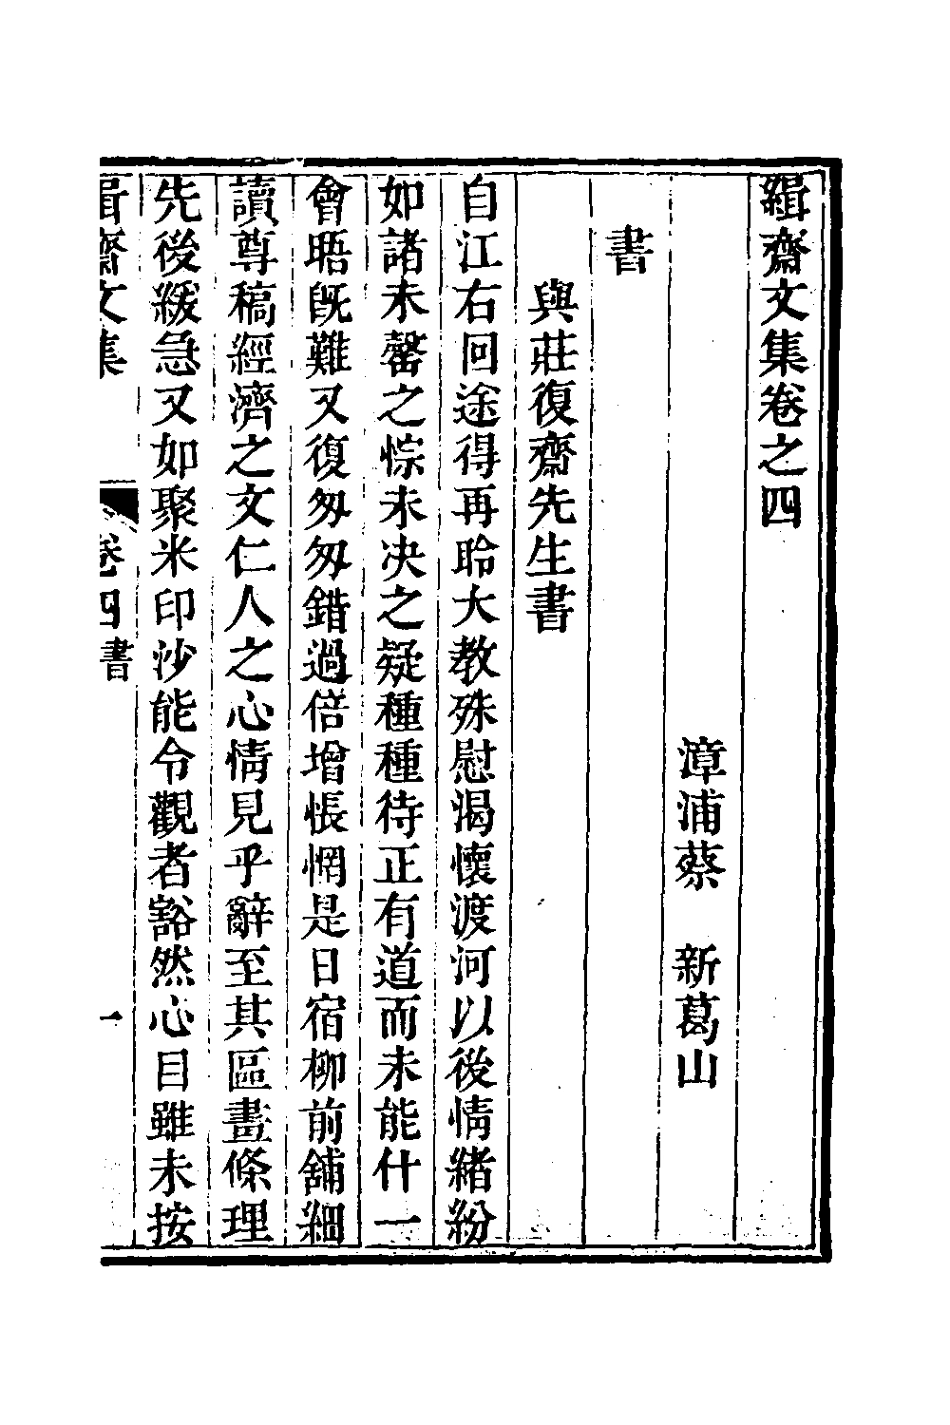 緝齋文集卷之四
漳浦蔡　新葛山
書
與莊復齋先生書
自江右回途得再聆大教殊慰渴懷渡河以後情緒紛
如諸未罄之悰未决之疑種種待正有道而未能什一
會晤旣難又復匆匆錯過倍增悵惘是日宿柳前舖細
讀尊稿經濟之文仁人之心情見乎辭至其區畫條理
先後緩急又如聚米印沙能令觀者豁然心目雖未按
緝齋文集　卷四書　一